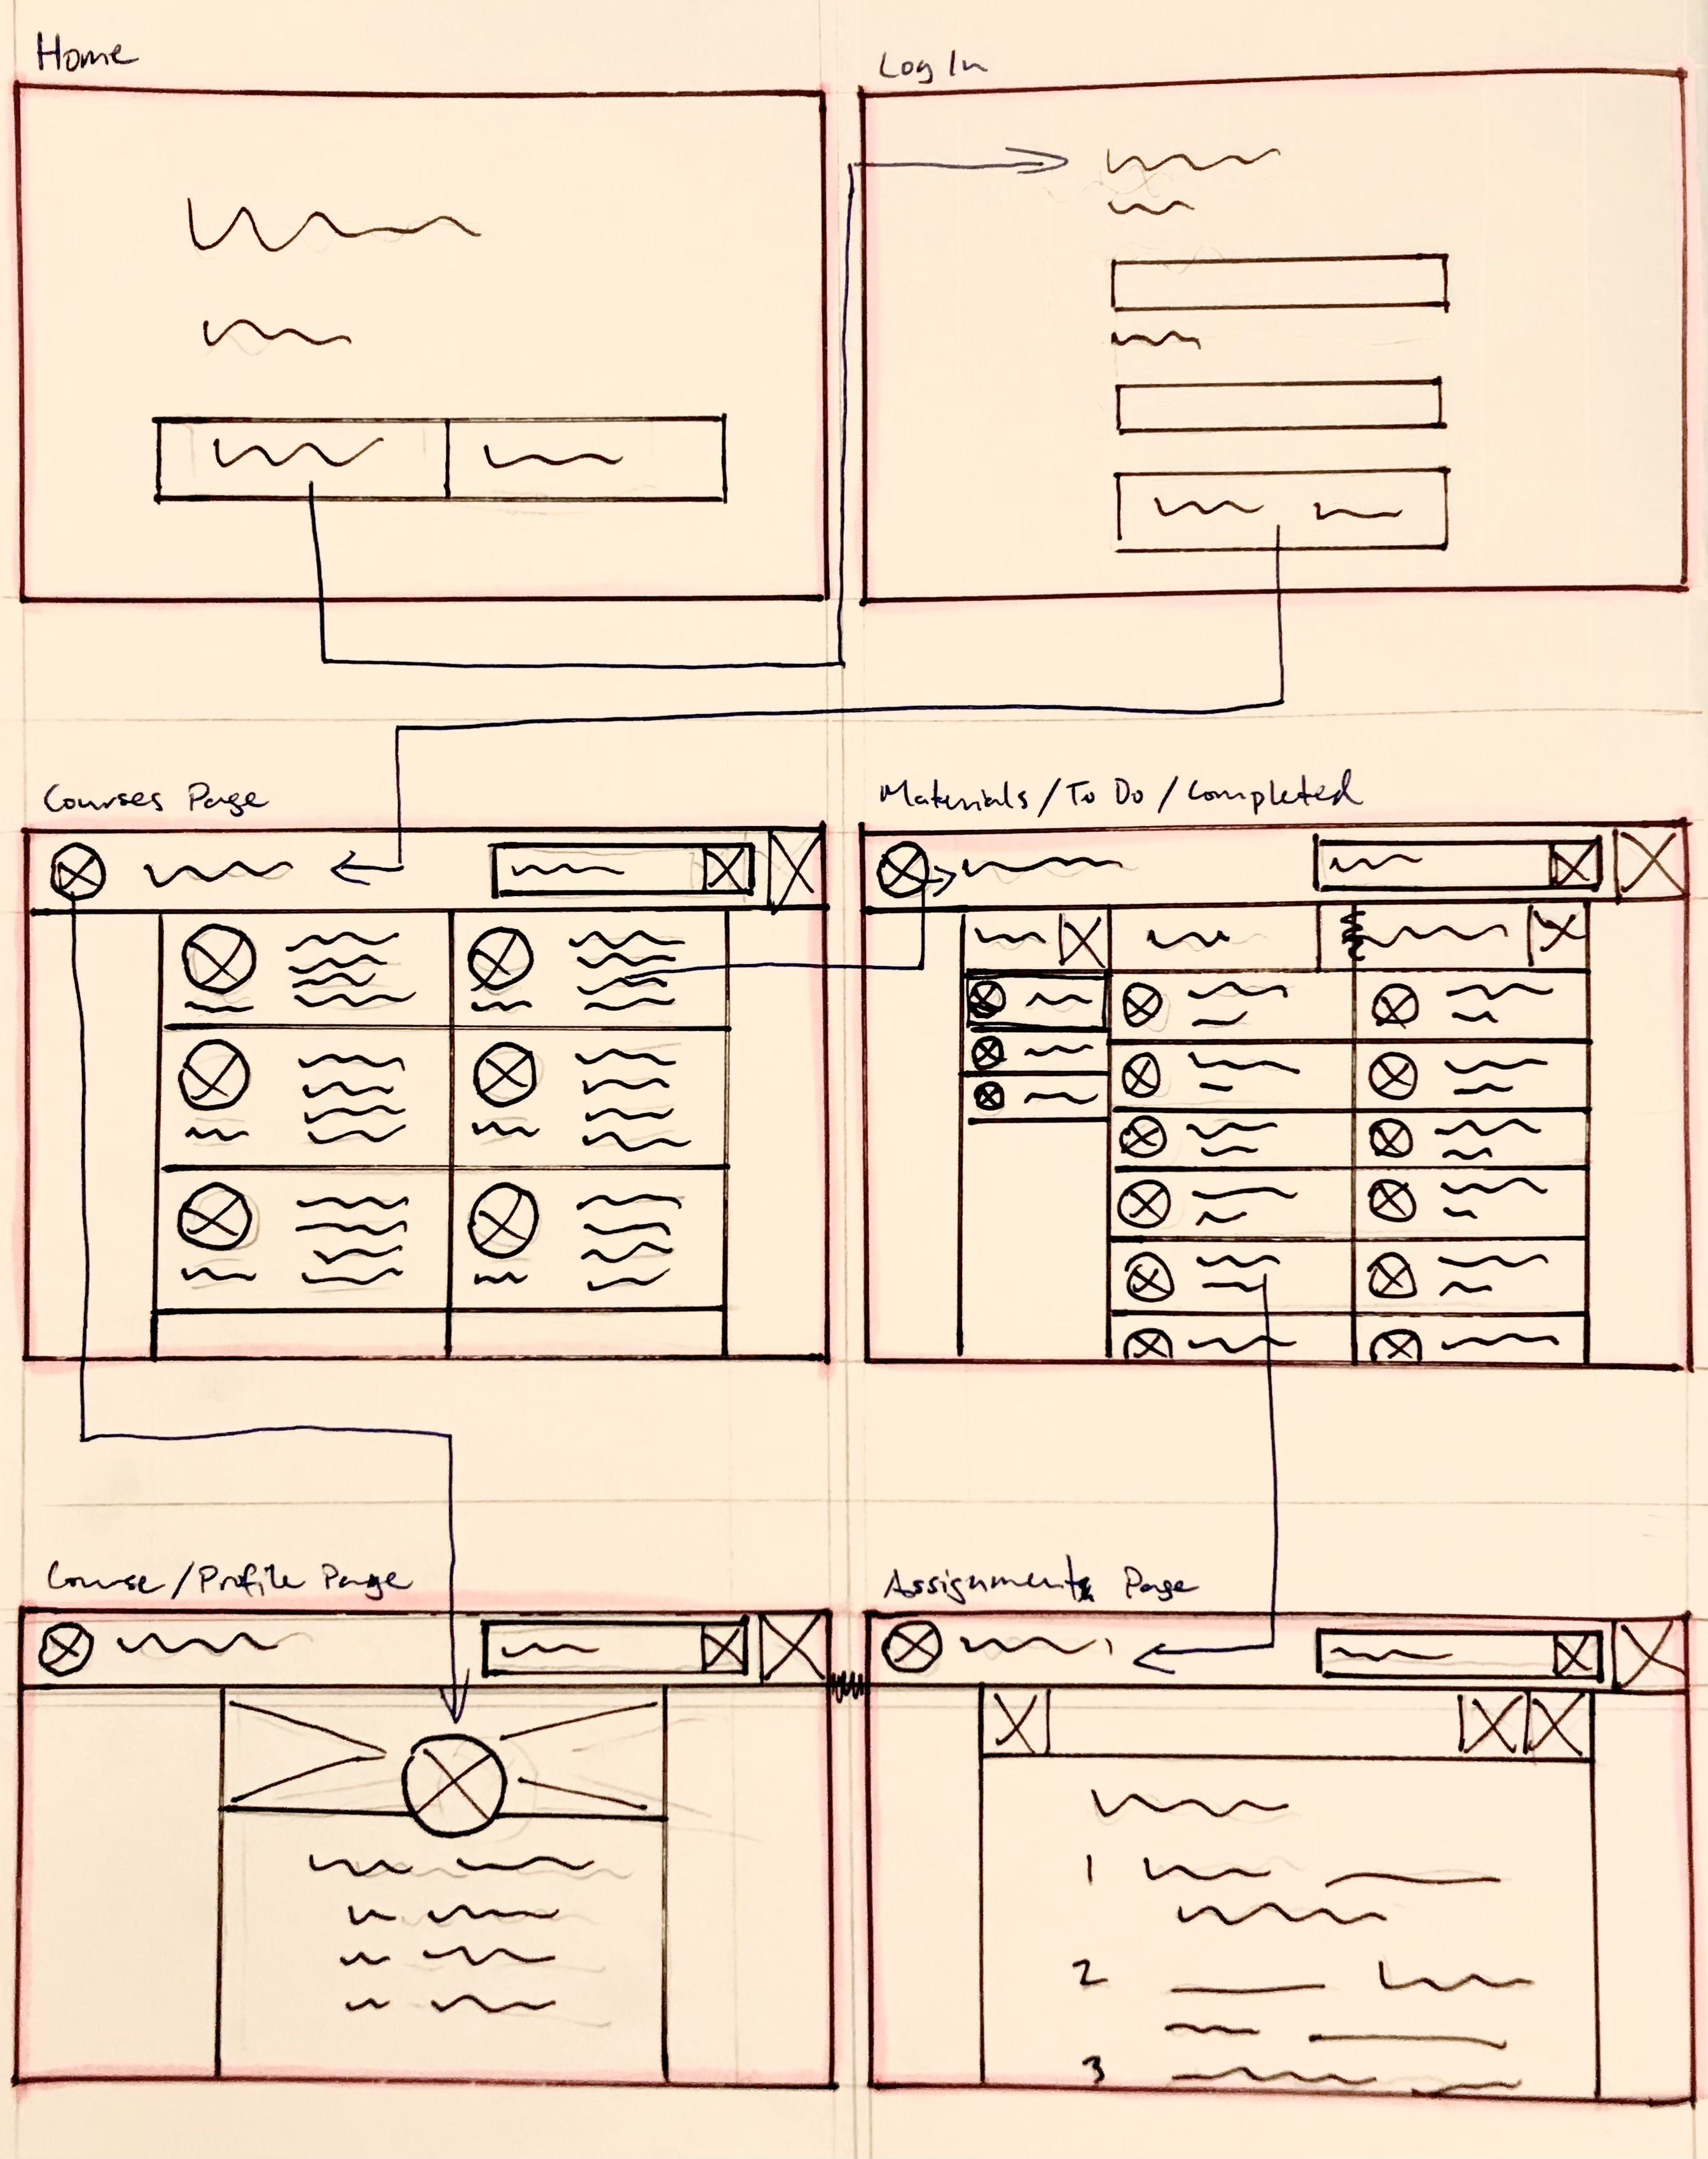 Home
Log In
Courses Page
Materials / To Do / Completed
Course / Profile Page
Assignments Page
1
2
3